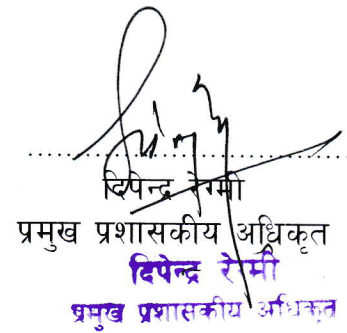 दिपेन्द्र रेग्मी
प्रमुख प्रशासकीय अधिकृत
दिपेन्द्र रेग्मी
प्रमुख प्रशासकीय अधिकृत